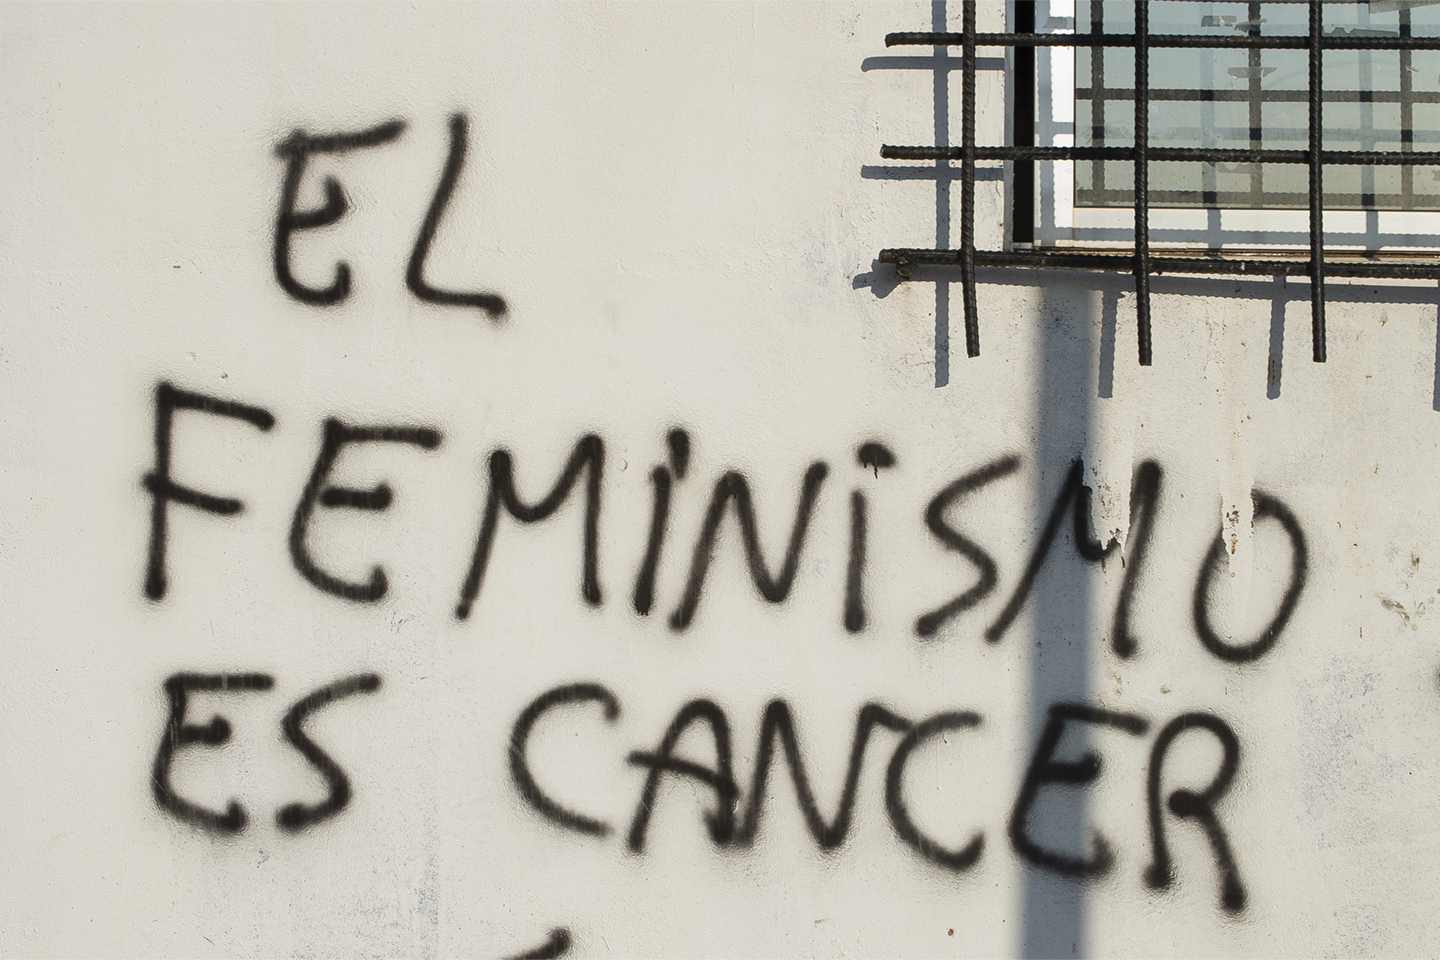 EL
FEMiNiSMO
ES CANCER